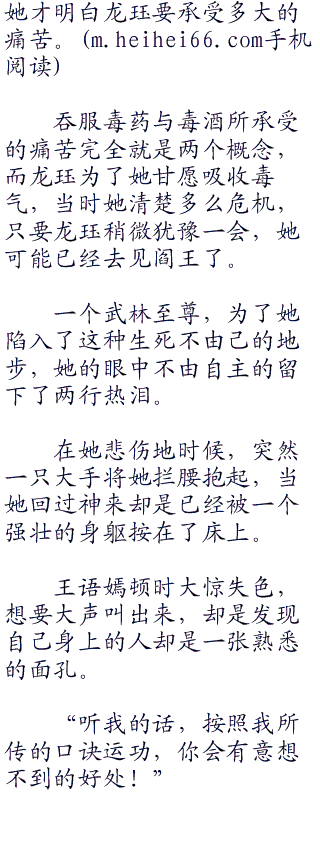 她才明白龙珏要承受多大的
痛苦。(m.heihei66.com手机
阅读)
吞服毒药与毒酒所承受
的痛苦完全就是两个概念，
而龙珏为了她甘愿吸收毒
气，当时她清楚多么危机，
只要龙珏稍微犹豫一会，她
可能已经去见阎王了。
一个武林至尊，为了她
陷入了这种生死不由己的地
步，她的眼中不由自主的留
下了两行热泪。
在她悲伤地时候，突然
一只大手将她拦腰抱起，当
她回过神来却是已经被一个
强壮的身躯按在了床上。
王语嫣顿时大惊失色，
想要大声叫出来，却是发现
自己身上的人却是一张熟悉
的面孔。
“听我的话，按照我所
传的口诀运功，你会有意想
不到的好处！”